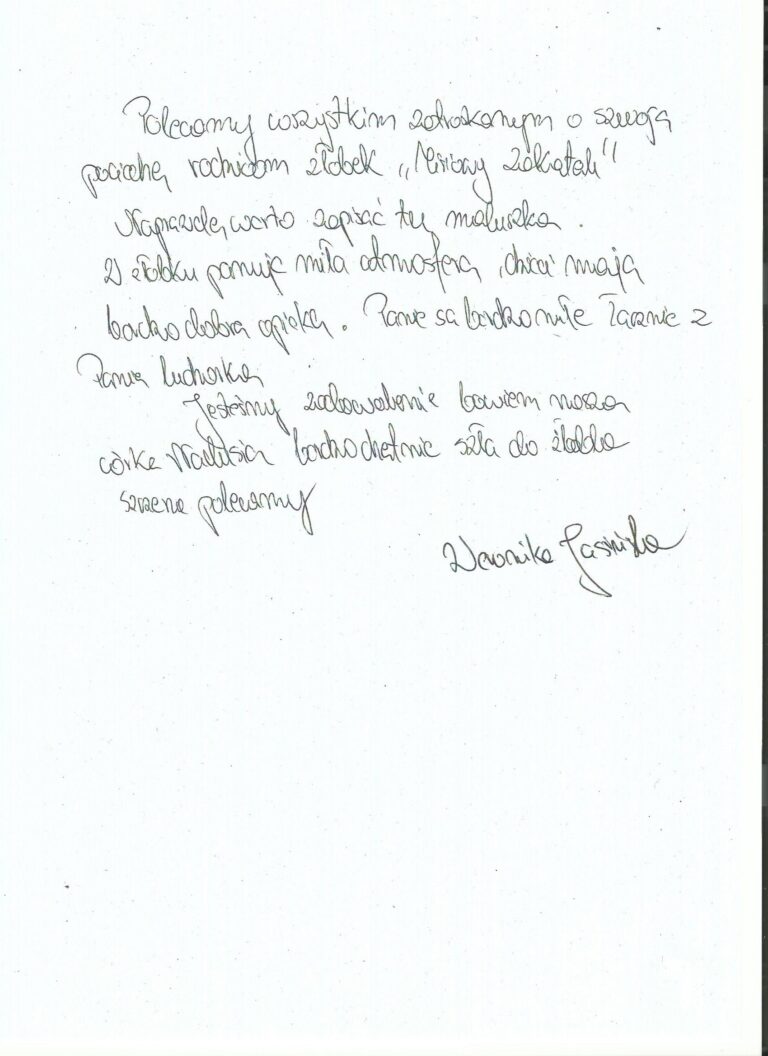 Polecamy wszystkim zatroskanym o szwoją
pociechę rodzicom żłobek „Misiowy Zakątek"
Naprawdę warto zapisać tu maluszka.
W żłobku panuję miła atmosfera, dzieci mają
bardzo dobrą opiekę. Panie są bardzo miłe łącznie z
Panią kucharką
Jesteśmy zadowolenie bowiem nasza
córka bardzo chętnie szła do żłobka
szczerze polecamy
Weronika Jasińska